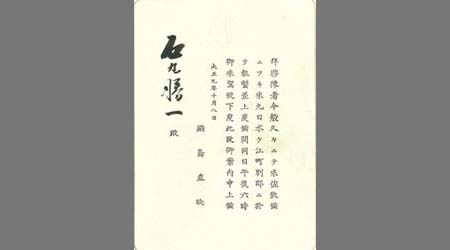 拜啓陳者今般久々ニテ来佐致候
ニツキ来九日水ケ江町別邸ニ於
テ粗餐差上度候間同日午後六時
御来駕被下度此段御案内申上候
大正九年十月八日
鍋島直映
石丸勝一殿